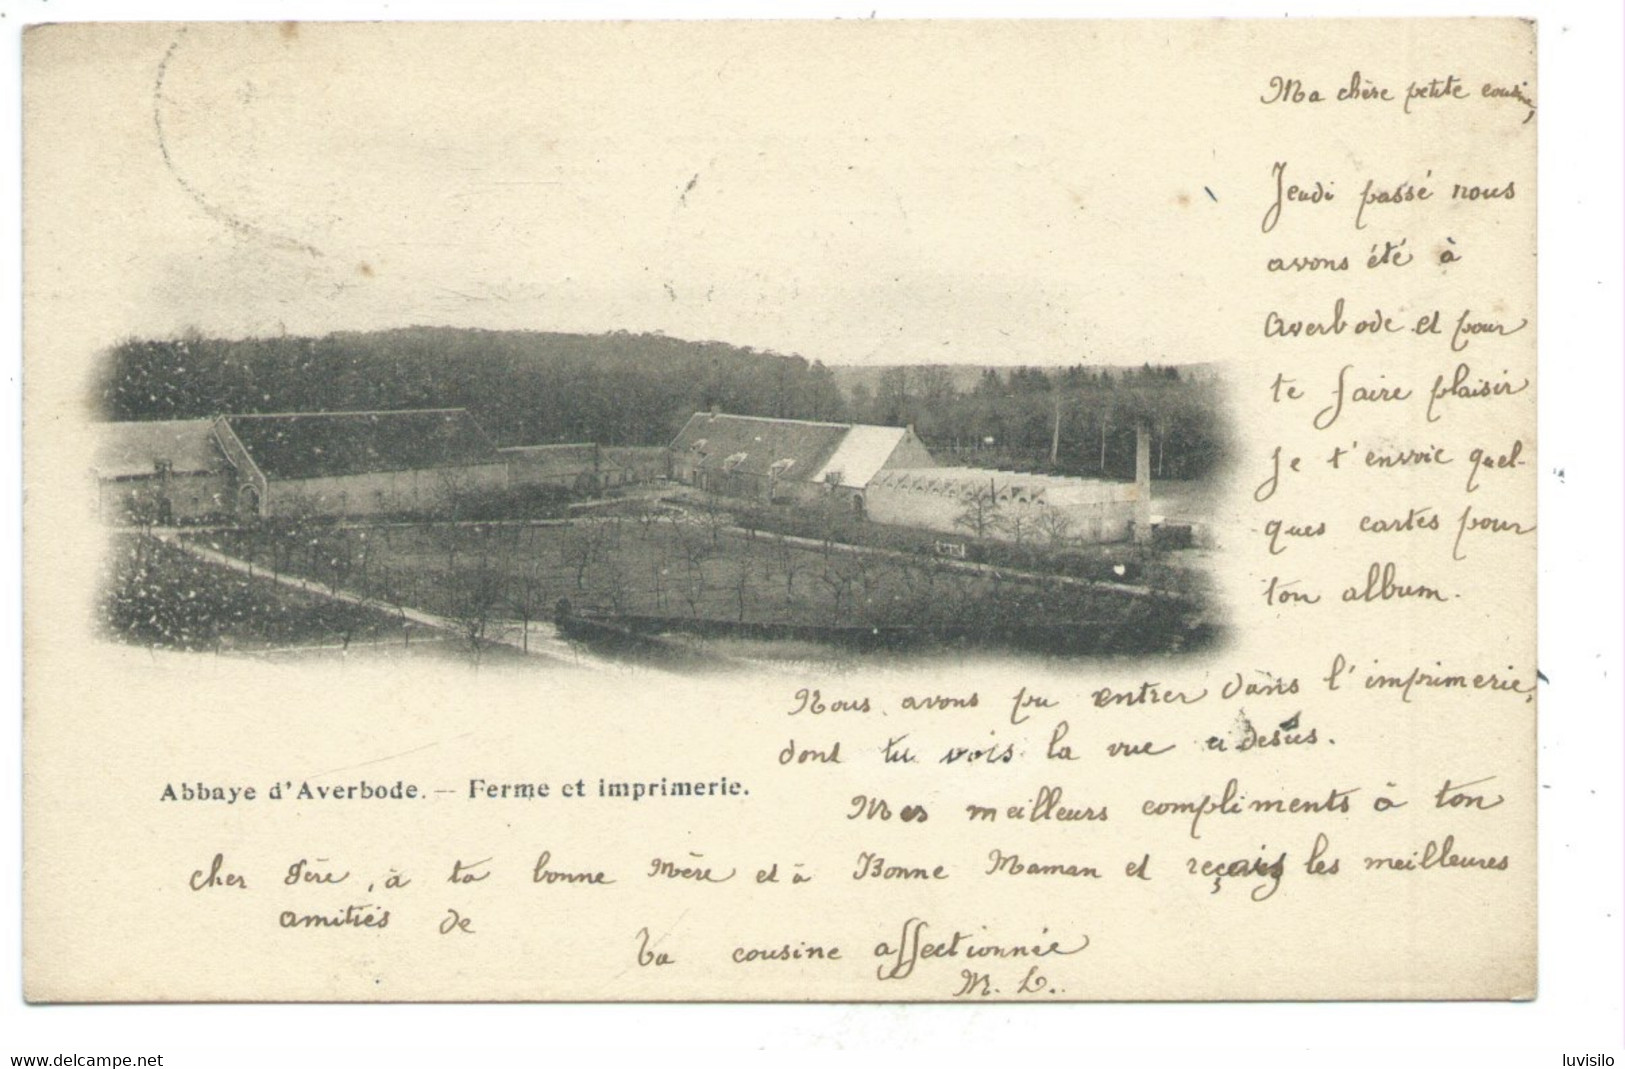 Ma chère petite cousine,
Jeudi passé nous
avons été à
Averbode et pour
te faire plaisir
je t'envoie quel-
ques cartes pour
ton album.
Nous avons pu entrer dans l'imprimerie,
dont tu vois la vue ci desus.
Abbaye d'Averbode. — Ferme et imprimerie.
Mes meilleurs compliments à ton
cher Père, à ta bonne Mère et à Bonne Maman et reçois les meilleures
amitiés de
Ta cousine affectionnée
M. L.
www.delcampe.net
luvisilo